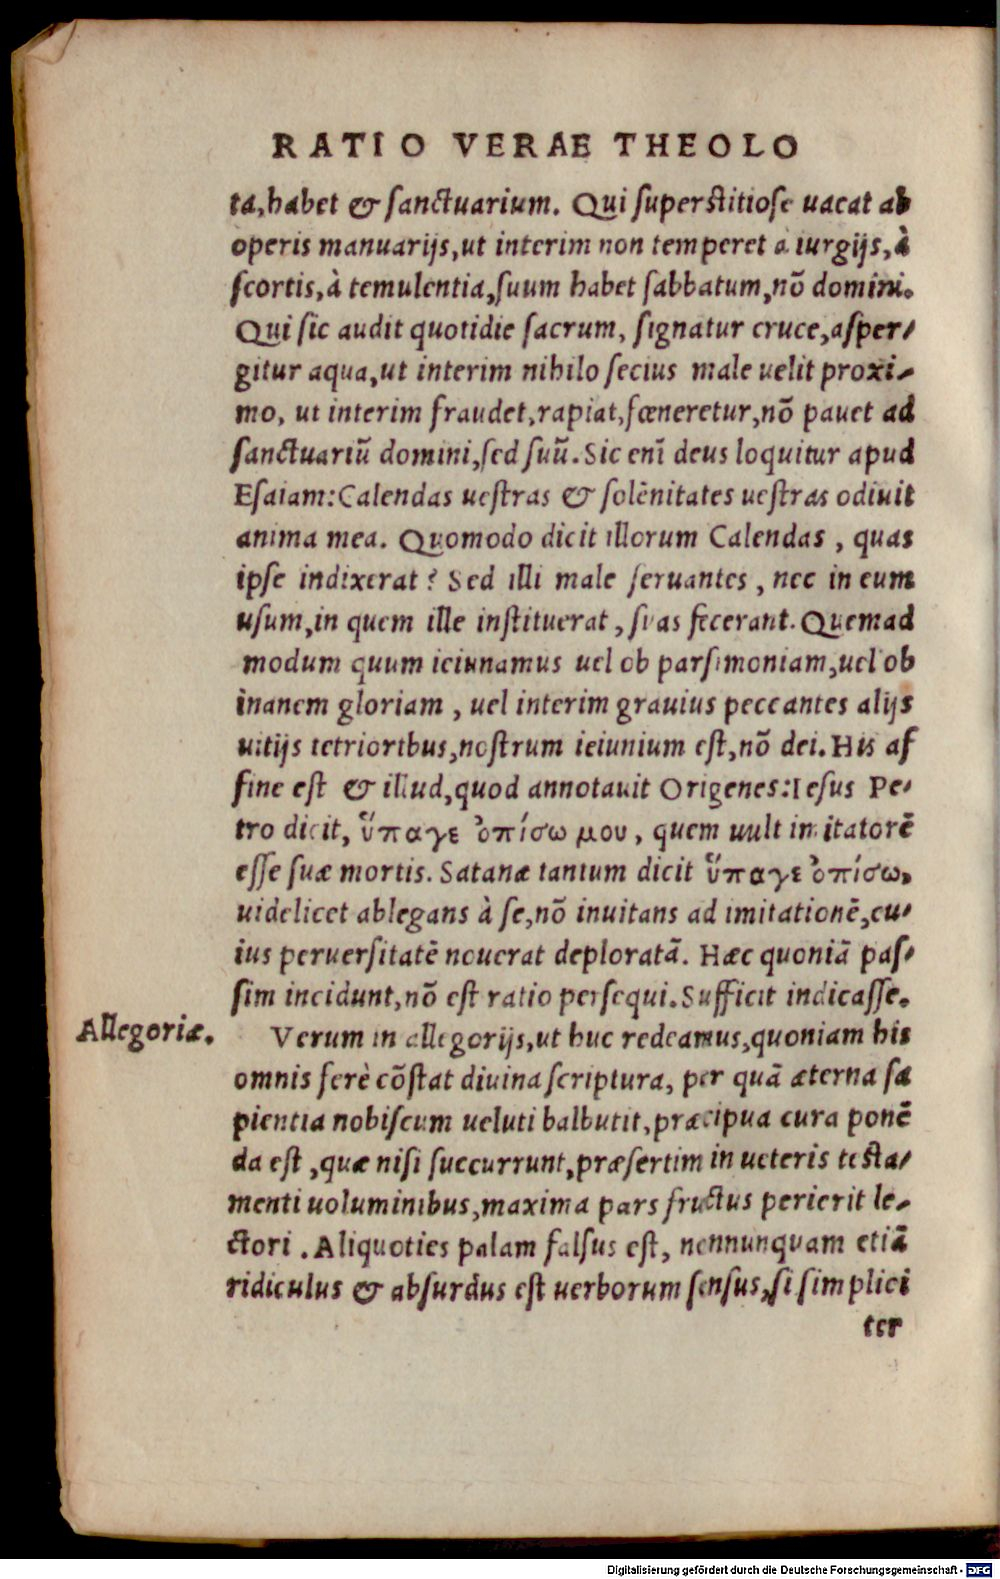 RATIO VERAE THEOLO
ta, habet & sanctuarium. Qui superstitiose uacat ab
operis manuarijs, ut interim non temperet à iurgijs, à
scortis, à temulentia, suum habet sabbatum, nõ domini.
Qui sic audit quotidie sacrum, signatur cruce, asper-
gitur aqua, ut interim nihilo secius male uelit proxi-
mo, ut interim fraudet, rapiat, fœneretur, nõ pauet ad
sanctuariũ domini, sed suũ. Sic enĩ deus loquitur apud
Esaiam: Calendas uestras & solẽnitates uestras odiuit
anima mea. Quomodo dicit illorum Calendas, quas
ipse indixerat? Sed illi male seruantes, nec in eum
usum, in quem ille instituerat, suas fecerant. Quemad
modum quum ieiunamus uel ob parsimoniam, uel ob
inanem gloriam, uel interim grauius peccantes alijs
uitijs tetrioribus, nostrum ieiunium est, nõ dei. His af
fine est & illud, quod annotauit Origenes: Iesus Pe-
tro dicit, ὕπαγε ὀπίσω μου, quem uult imitatorẽ
esse suæ mortis. Satanæ tantum dicit ὕπαγε ὀπίσω,
uidelicet ablegans à se, nõ inuitans ad imitationẽ, cu-
ius peruersitatẽ nouerat deploratã. Hæc quoniã pas-
sim incidunt, nõ est ratio persequi. Sufficit indicasse.
Allegoriæ.
Verum in allegorijs, ut huc redeamus, quoniam his
omnis ferè cõstat diuina scriptura, per quã æterna sa
pientia nobiscum ueluti balbutit, præcipua cura ponẽ
da est, quæ nisi succurrunt, præsertim in ueteris testa-
menti uoluminibus, maxima pars fructus perierit le-
ctori. Aliquoties palam falsus est, nonnunquam etiã
ridiculus & absurdus est uerborum sensus, si simplici
ter
Digitalisierung gefördert durch die Deutsche Forschungsgemeinschaft - DFG